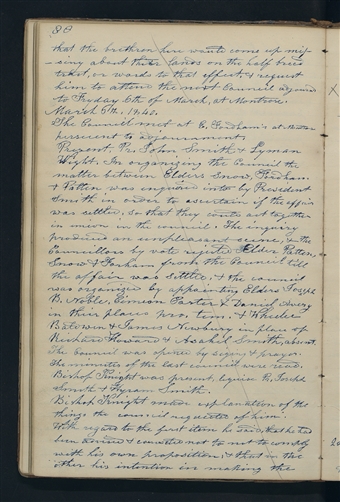 88
that the brethren here wants come up mis-
-sing about their lands on the half breed
tract, or words to that effect, & request
him to attend the next Council adjourned
to Fryday 6th of March, at Montrose.
March 6th, 1840.
The Council met at E. Fordham's at
persuent to adjournment
Present. Pr. John Smith & Lyman
Wight. In organizing the Council the
matter between Elders Snow, Fordham
& Patten was enquired into by President
Smith in order to ascertain if the affair
was settled, so that they could act together
in union in the council. The inquiry
produced an unpleasant scene, & the
Councillors by vote rejected Elder Patten,
Snow & Forham from the Council till
the affair was settled. & the council
was organized by appointing Elders Joseph
B. Noble, Gimion Carter & Daniel Avery
in their places pro. tem. & Wheeler
Baldwin & James Newbury in place of
Richard Howard & Asahel Smith, absent.
The Council was opened by singing & prayer.
The minutes of the last council were read.
Bishop Knight was present, Joseph
Smith & Hyrum Smith.
Bishop Knight made explanation of the
things the council requested of him.
With regard to the first item he said, that he had
been advised & councilled not to comply
with his own proposition; & that in the
other his intention in making the